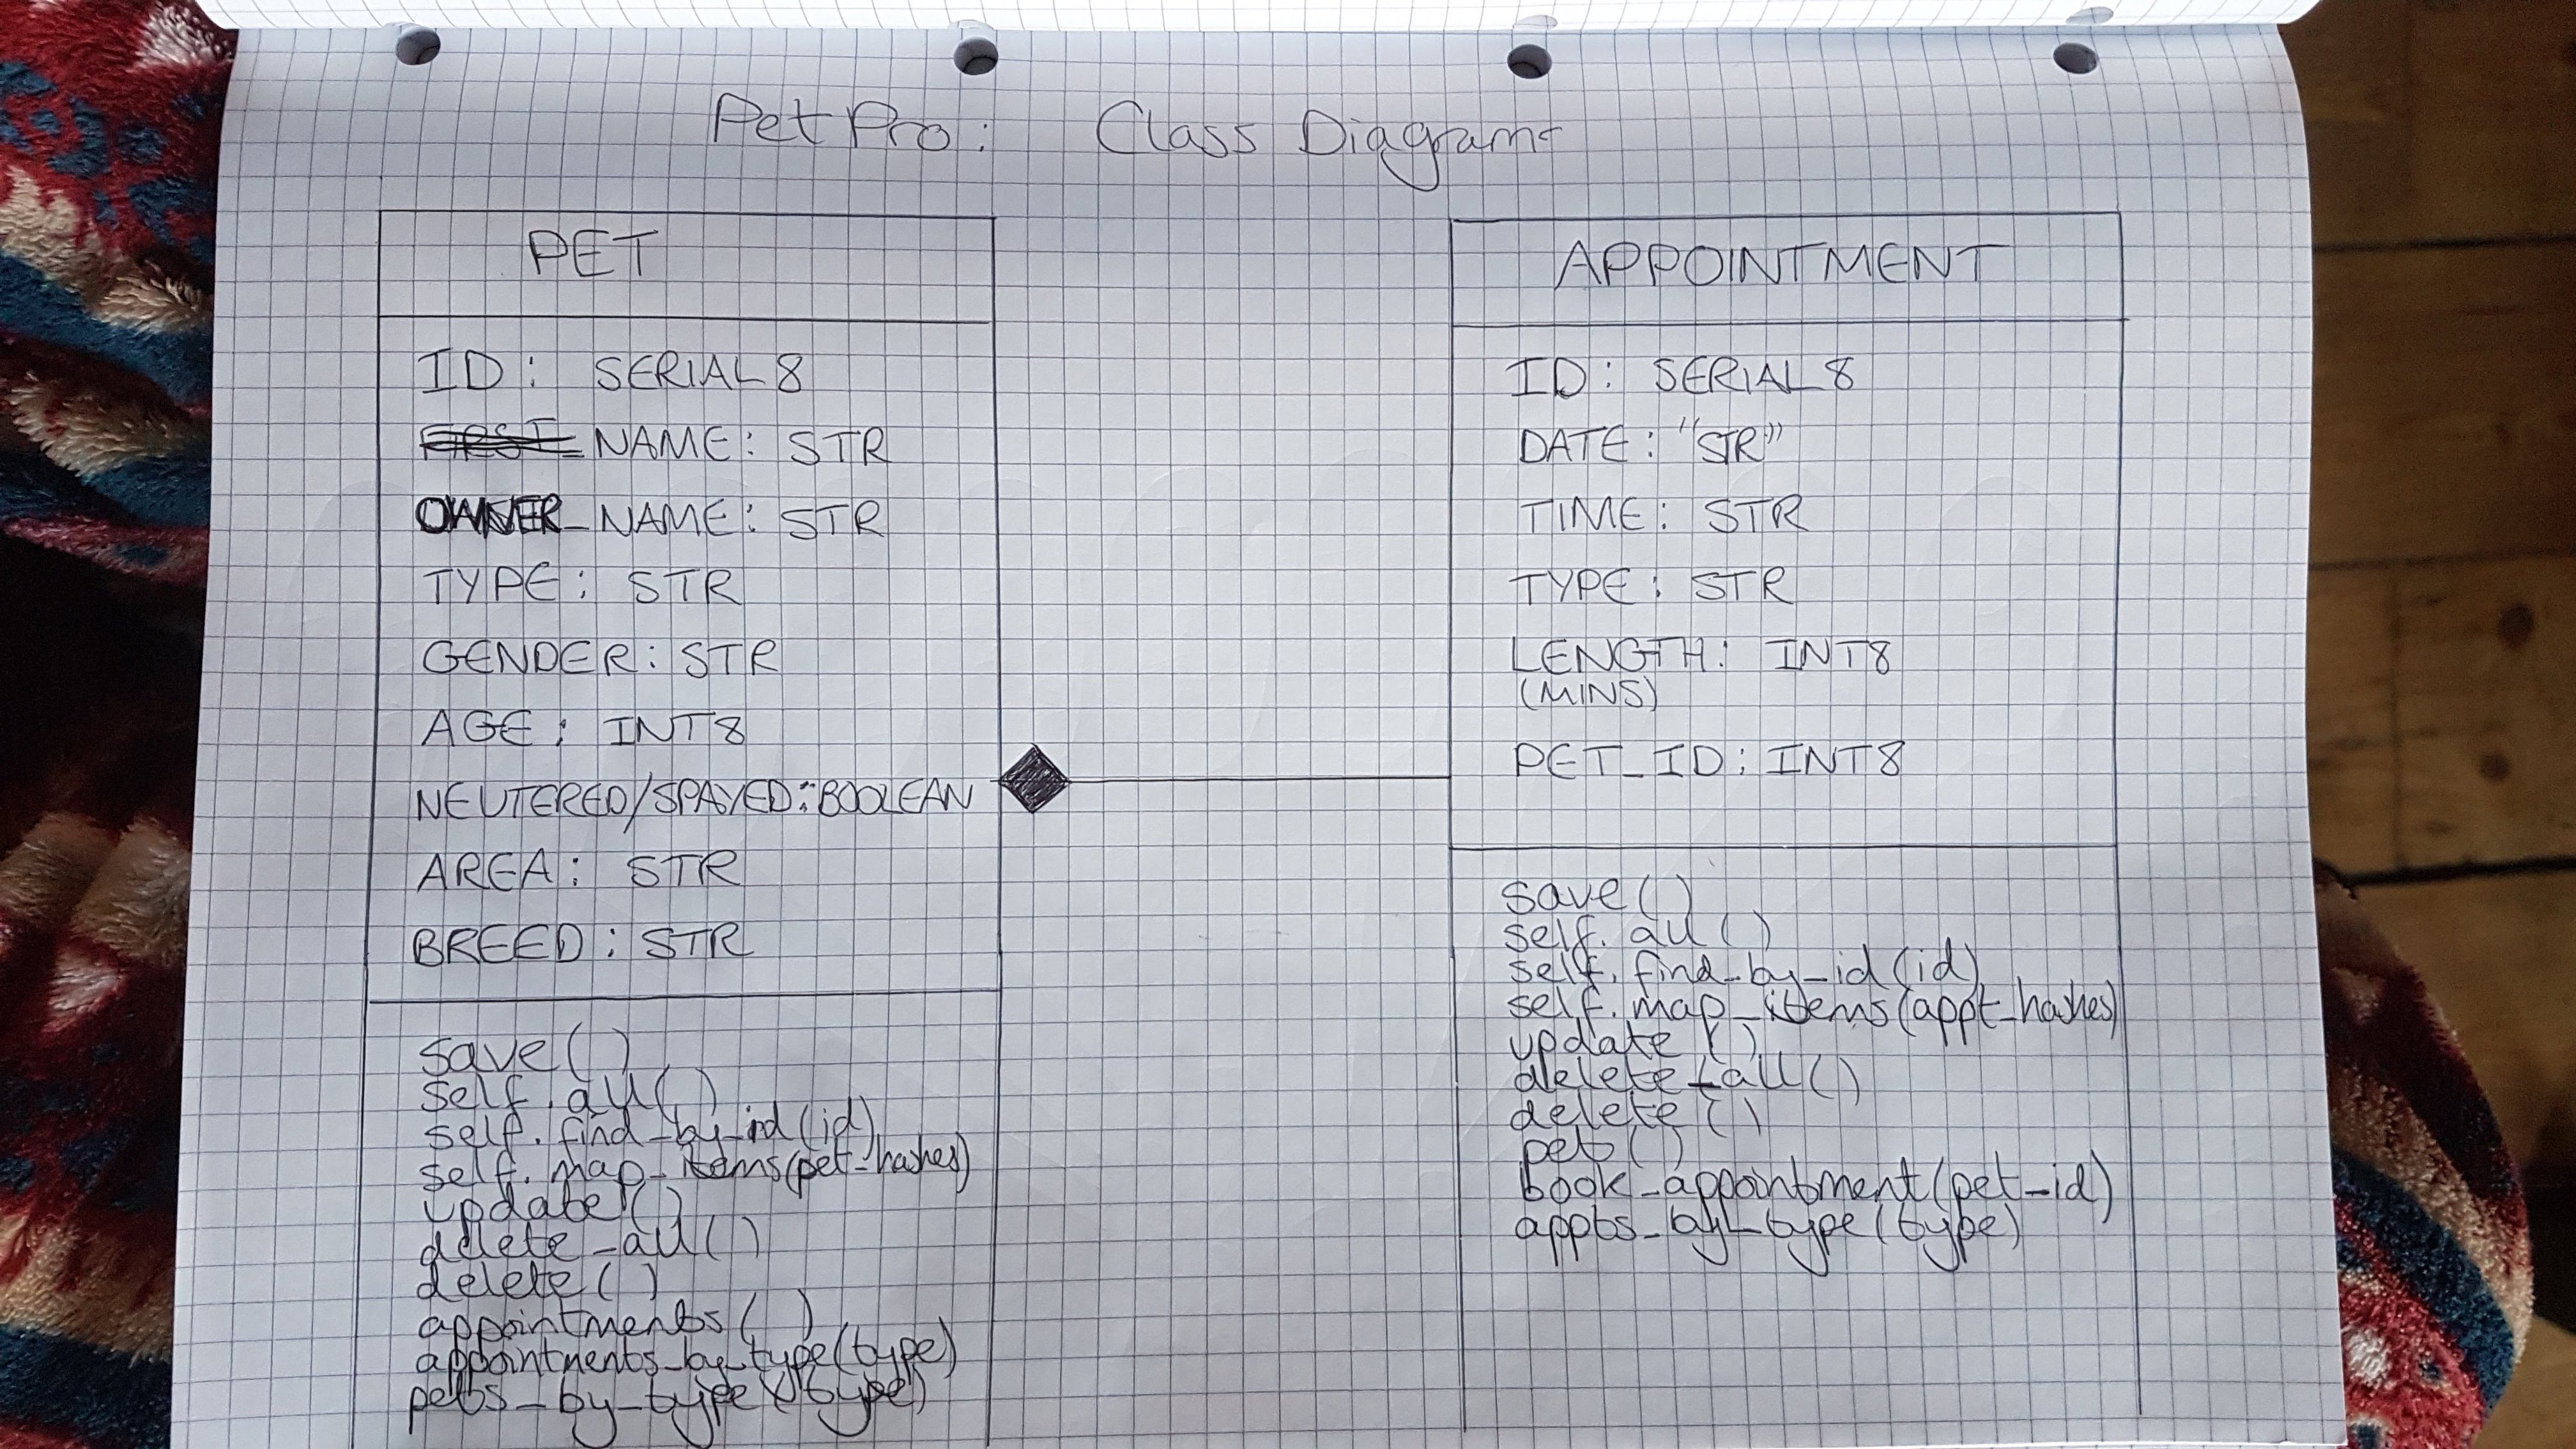 Pet Pro: Class Diagram
PET
ID: SERIAL8
NAME: STR
OWNER_NAME: STR
TYPE: STR
GENDER: STR
AGE: INT8
NEUTERED/SPAYED: BOOLEAN
AREA: STR
BREED: STR
save()
self.all()
self.find_by_id(id)
self.map_items(pet_hashes)
update()
delete_all()
delete()
appointments()
appointments_by_type(type)
pets_by_type(type)
APPOINTMENT
ID: SERIAL8
DATE: "STR"
TIME: STR
TYPE: STR
LENGTH: INT8
(MINS)
PET_ID: INT8
save()
self.all()
self.find_by_id(id)
self.map_items(appt_hashes)
update()
delete_all()
delete()
pet()
book_appointment(pet_id)
appts_by_type(type)